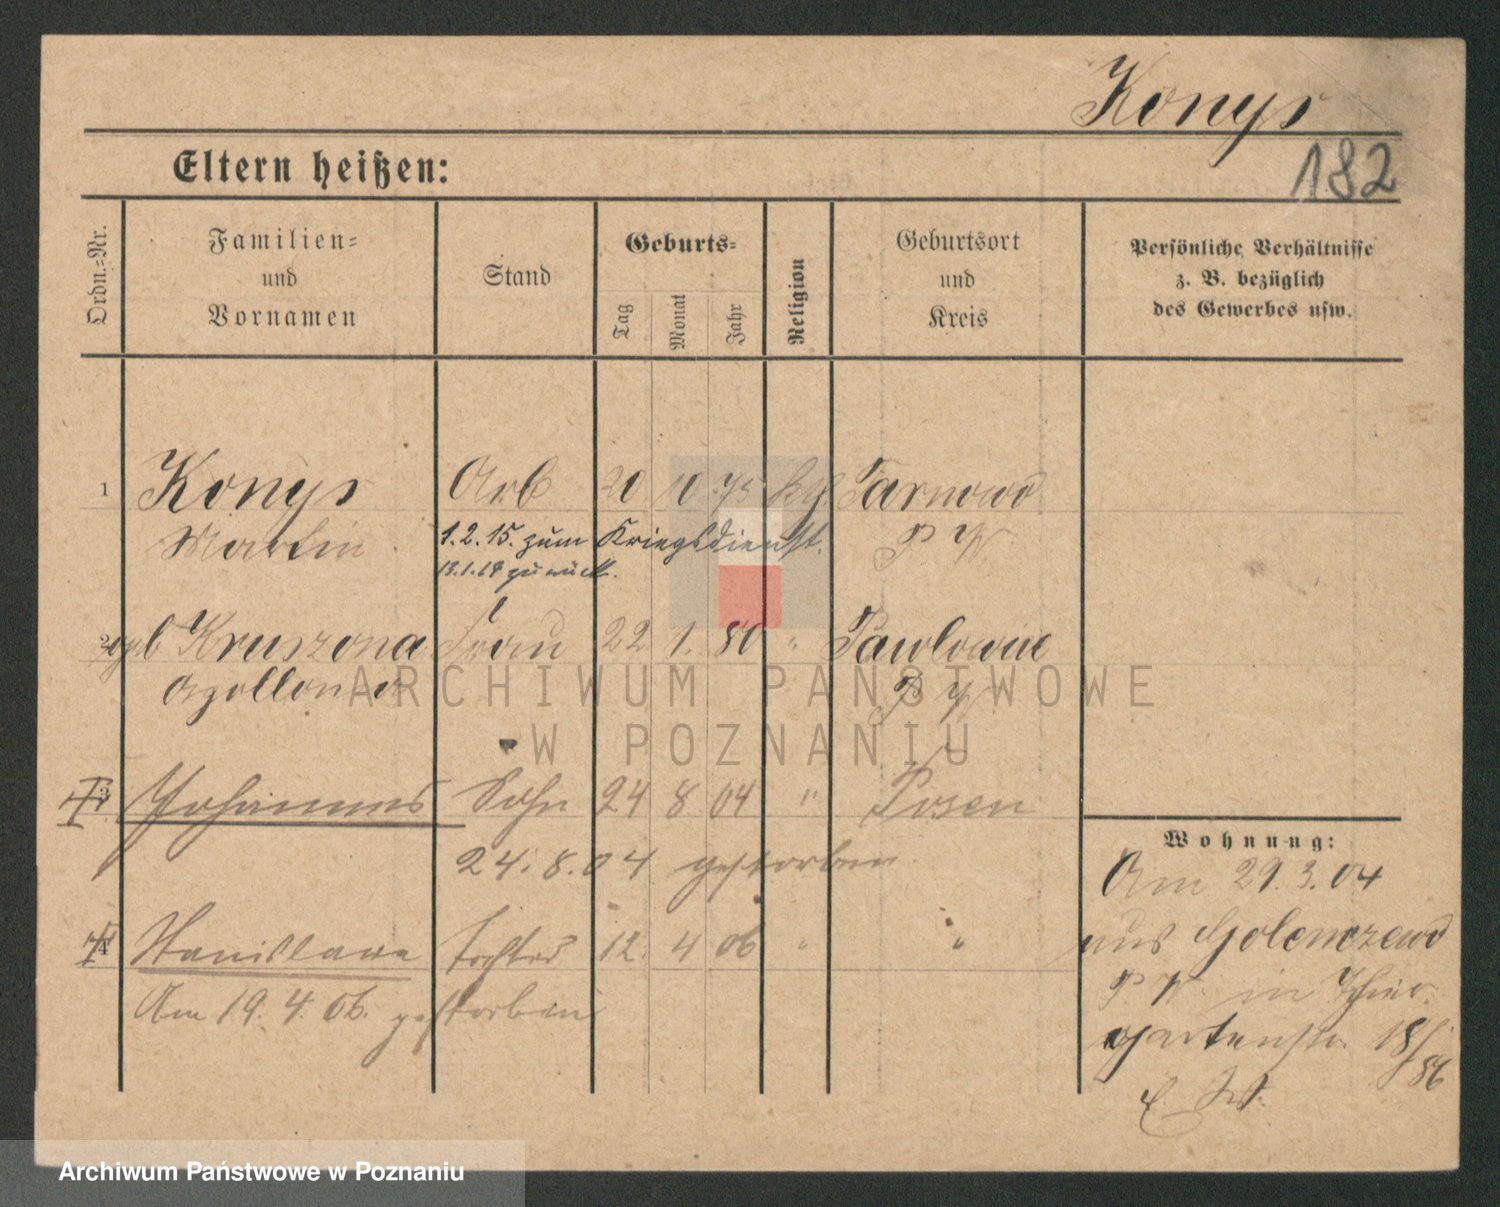 Konys
182
Eltern heißen:
Ordn.-Nr.
Familien-
und
Vornamen
Stand
Geburts-
Tag
Monat
Jahr
Religion
Geburtsort
und
Kreis
Persönliche Verhältnisse
z. B. bezüglich
des Gewerbes usw.
1 Konys Arb 20 10 75 Tarnowo
Martin 1.2.15. zum Kriegsdienst. P W
zurück.
2 geb Kruszona Frau 22 1. 80 " Pawlowice
Apollonia P W
3 Johannes Sohn 24 8 04 " Posen
24.8.04 gestorben
4 Stanislawa Tochter 12. 4 06 " "
Am 19.4.06. gestorben
Wohnung:
Am 29.3.04
aus Golenczewo
P W in Thier
gartenstr. 18/
86
ARCHIWUM PAŃSTWOWE
W POZNANIU
Archiwum Państwowe w Poznaniu